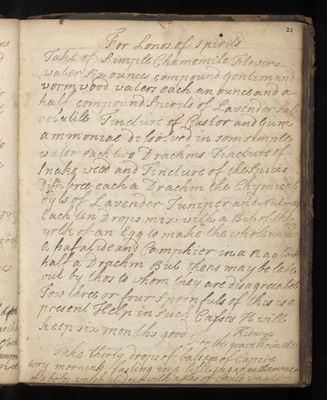 21
For Lones of Spirits
Take of Simple Chamemile Flowers
water Six ounces compound Gentian and
wormwood waters each an ounce and a
half compound Spirits of Lavender Sal
volatile Tincture of Castor and Gum
ammoniac disolved in som simple
water each two Drachms Tincture of
Snake weed and Tincture of the Spices
each a Drachm the Chymical
oyls of Lavender Juniper and Nutmeg
each ten Drops mix with a
yolk of an Egg to make the whole
a and Camphier in a Rag
half a Drachm But thers may be left
out by thos to whom they are disagreeable
Tow three or four Spoonfuls of this is a
present Help in Such Cases It will
keep six months good
for the gravele in the
Take thirty drops of balsam of
every morning fasting in a little sugar